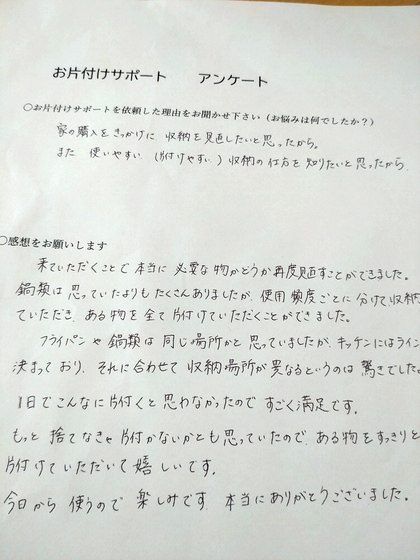 お片付けサポート　アンケート
○お片付けサポートを依頼した理由をお聞かせ下さい（お悩みは何でしたか？）
家の購入をきっかけに 収納を見直したいと思ったから。
また 使いやすい（片付けやすい）収納の仕方を知りたいと思ったから。
○感想をお願いします
来ていただくことで本当に必要な物かどうか再度見直すことができました。
鍋類は思っていたよりもたくさんありましたが、使用頻度ごとに分けて収納
ていただき、ある物を全て片付けていただくことができました。
フライパンや鍋類は同じ場所かと思っていましたが、キッチンにはライン
決まっており、それに合わせて収納場所が異なるというのは驚きでした。
1日でこんなに片付くと思わなかったのですごく満足です。
もっと捨てなきゃ片付かないかとも思っていたので、ある物をすっきりと
片付けていただいて嬉しいです。
今日から使うので楽しみです。本当にありがとうございました。